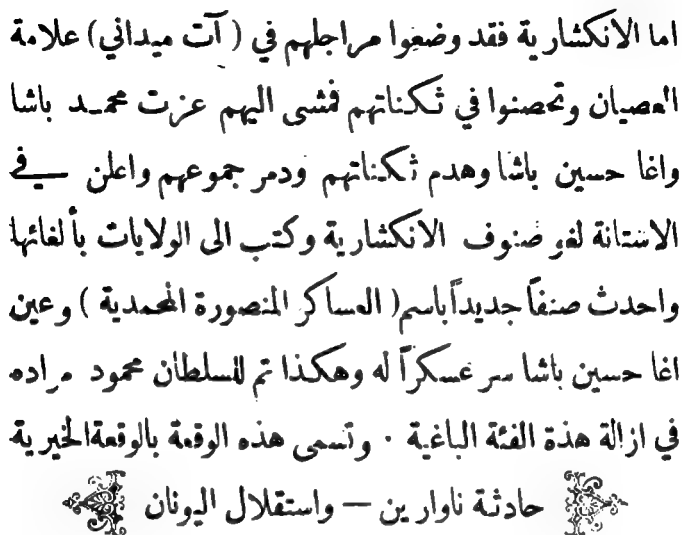 اما الانكشارية فقد وضعوا مراجلهم في ( آت ميداني) علامة
العصيان وتحصنوا في ثكناتهم فمشى اليهم عزت محمد باشا
واغا حسين باشا وهدم ثكناتهم ودمر جموعهم واعلن في
الاستانة لغو صنوف الانكشارية وكتب الى الولايات بألغائها
واحدث صنفاً جديداً باسم ( العساكر المنصورة المحمدية ) وعين
اغا حسين باشا سر عسكراً له وهكذا تم للسلطان محمود مراده
في ازالة هذة الفئة الباغية · وتسمى هذه الوقعة بالوقعة الخيرية
حادثة ناوارين — واستقلال اليونان